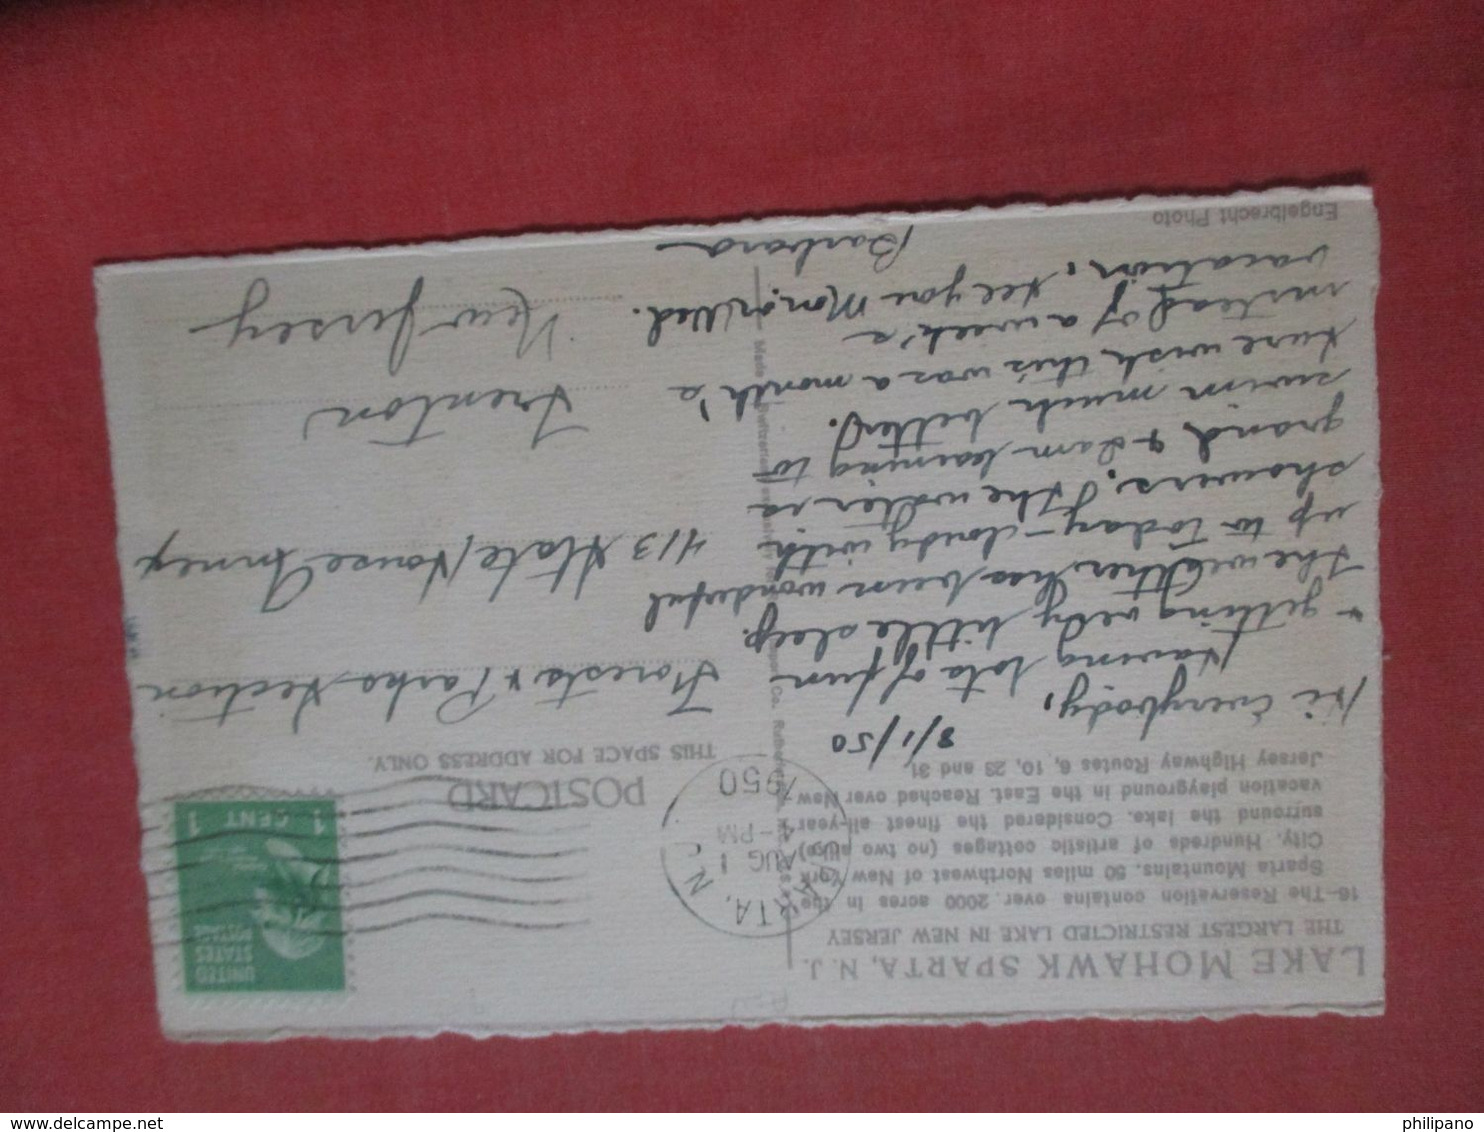 LAKE MOHAWK SPARTA, N. J.
THE LARGEST RESTRICTED LAKE IN NEW JERSEY
16—The Reservation contains over 2000 acres in the
Sparta Mountains, 50 miles Northwest of New York
City. Hundreds of artistic cottages (no two alike)
surround the lake. Considered the finest all-year
vacation playground in the East. Reached over New
Jersey Highway Routes 6, 10, 23 and 31.
8/1/50
Hi Everybody,
Having lots of fun
& getting very little sleep.
The weather has been wonderful
up to today - cloudy with
showers. The water is
grand & I am learning to
swim much better.
Sure wish this was a month's
instead of a week's
vacation. See you Mon. or Wed.
Barbara
Engelbrecht Photo
Made
SPARTA, N. J.
AUG 1
4-PM
1950
UNITED
STATES
POSTAGE
1 CENT 1
POSTCARD
THIS SPACE FOR ADDRESS ONLY.
Forests & Parks Section
413 State House Annex
Trenton
New Jersey
philipano